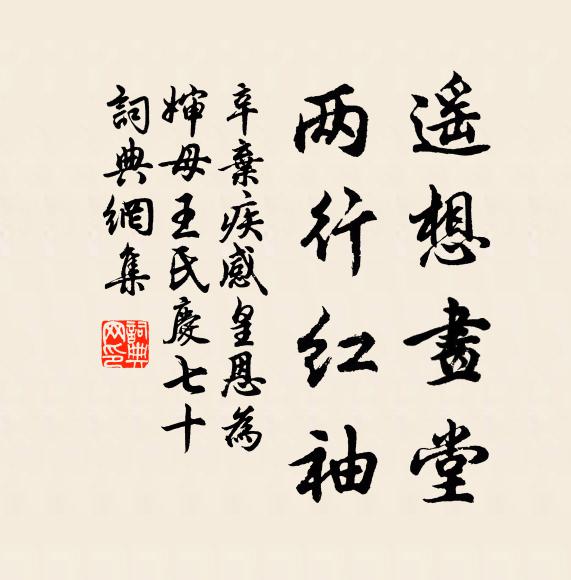 遥想畫堂
两行红袖
辛棄疾感皇恩為
嬸母王氏慶七十
詞典網集
詞典
网印